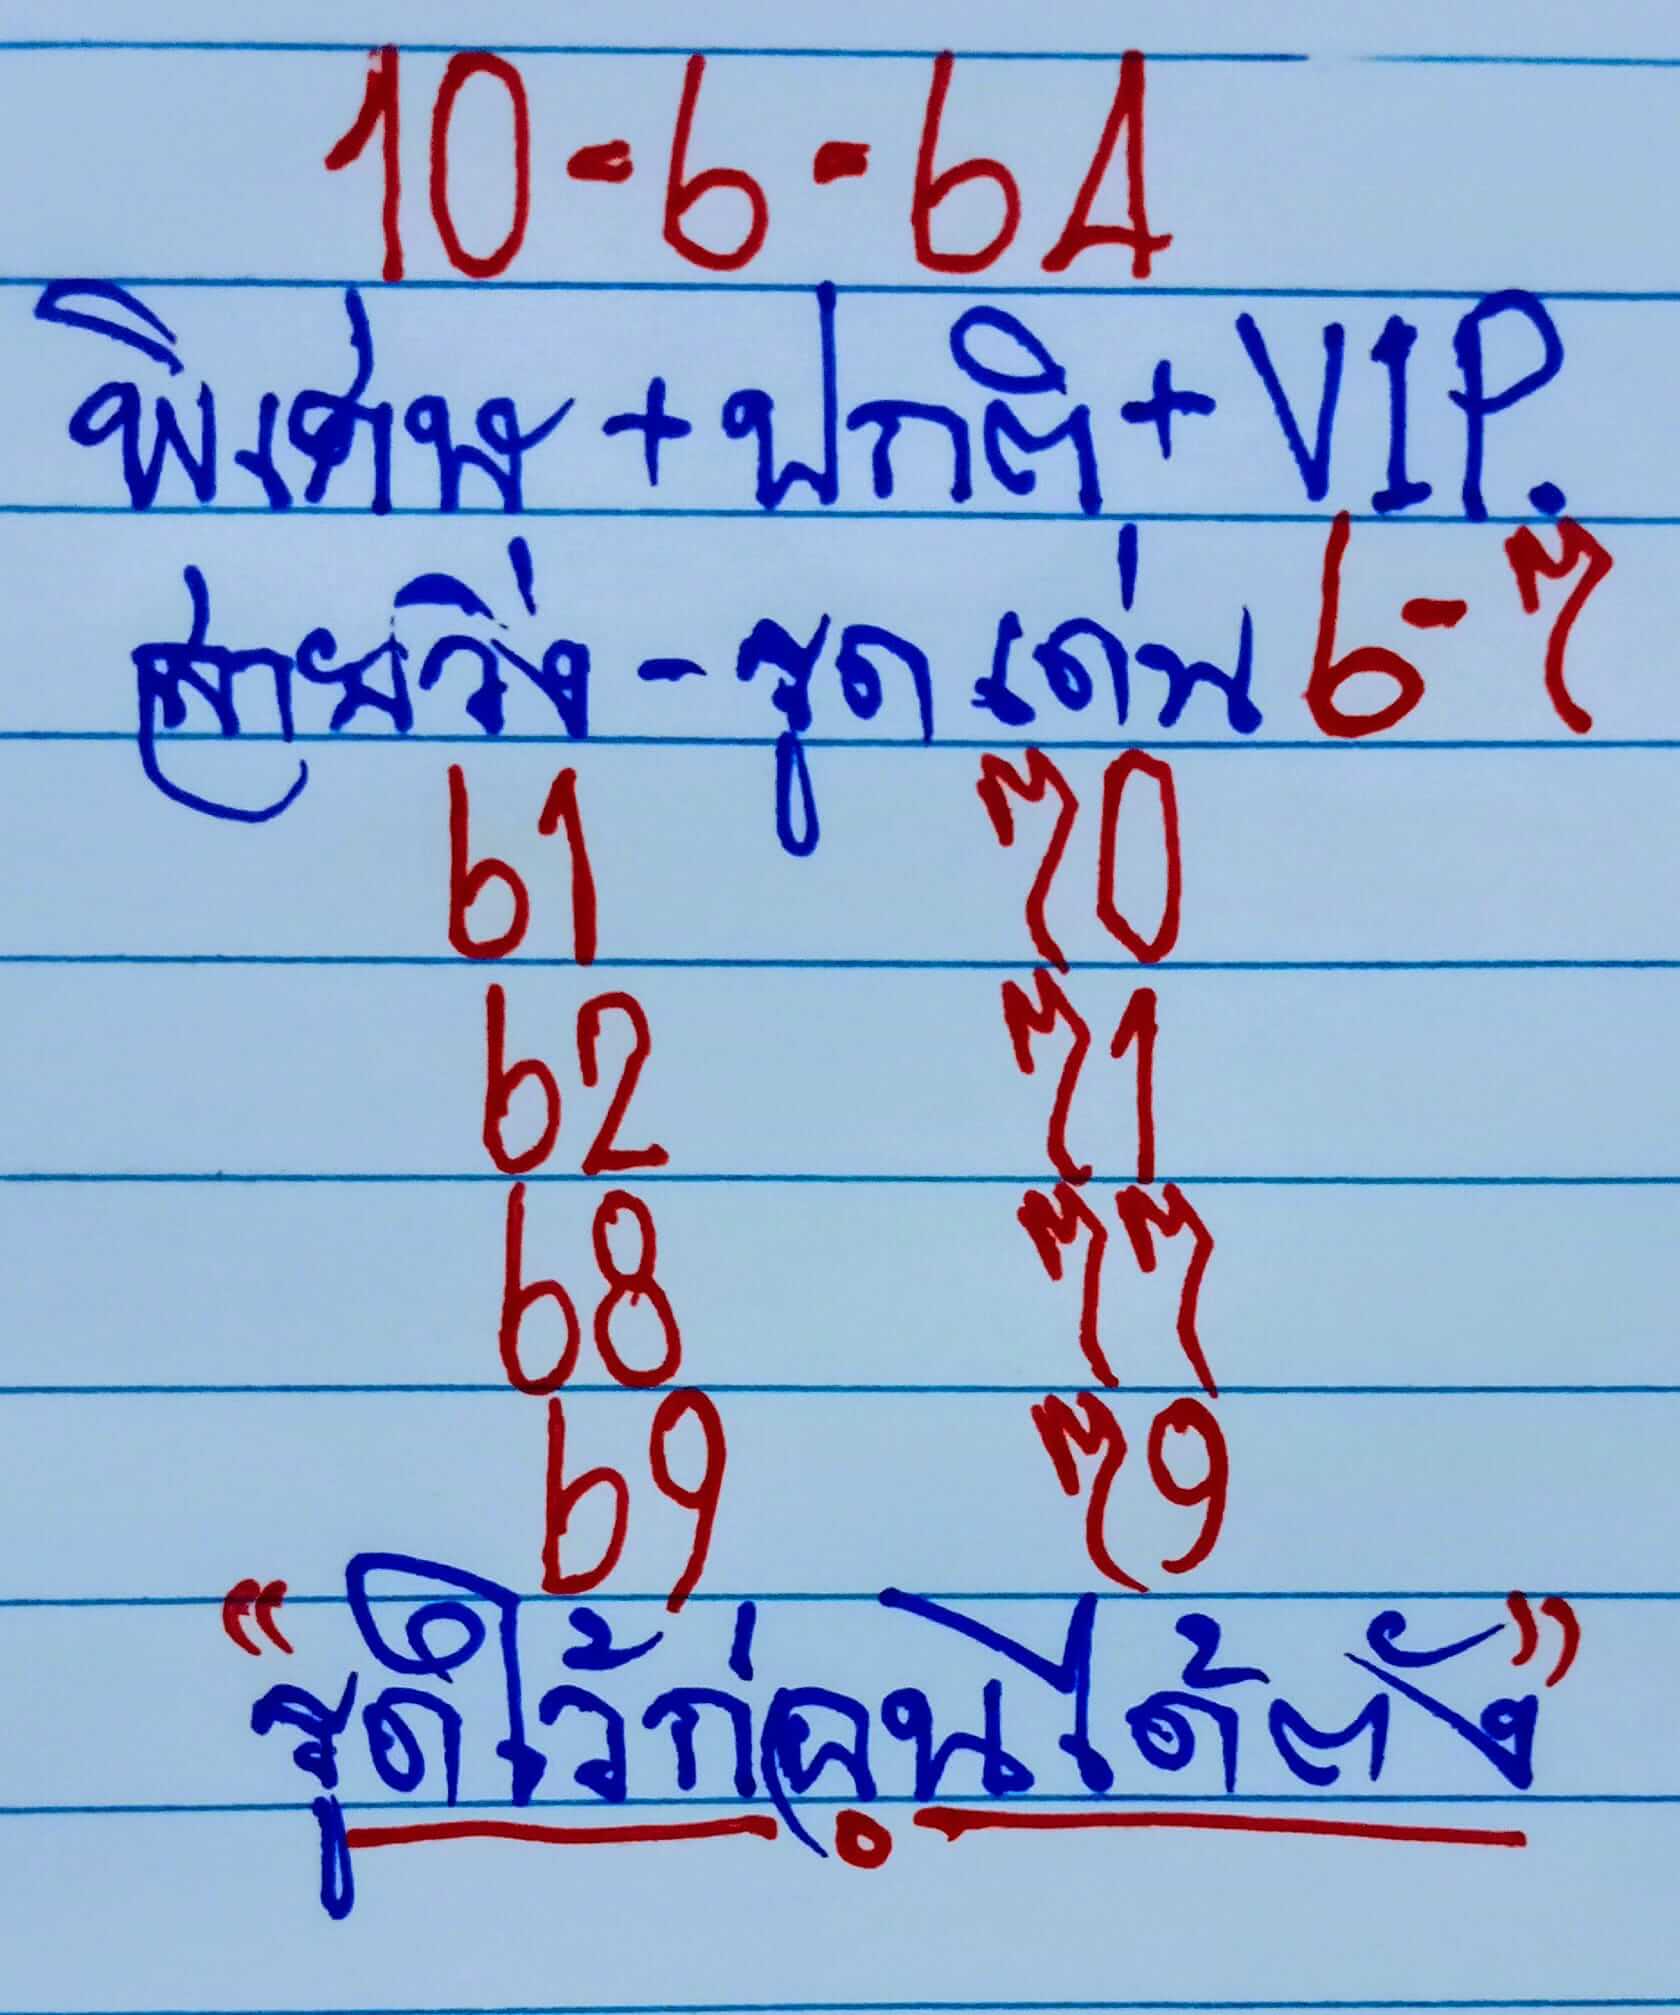 10-6-64
พิเศษ+ปกติ+VIP.
สายวิ่ง-รูด เด่น 6-7
61 70
62 71
68 77
69 79
"รูดไว้ก่อนได้ตัง"